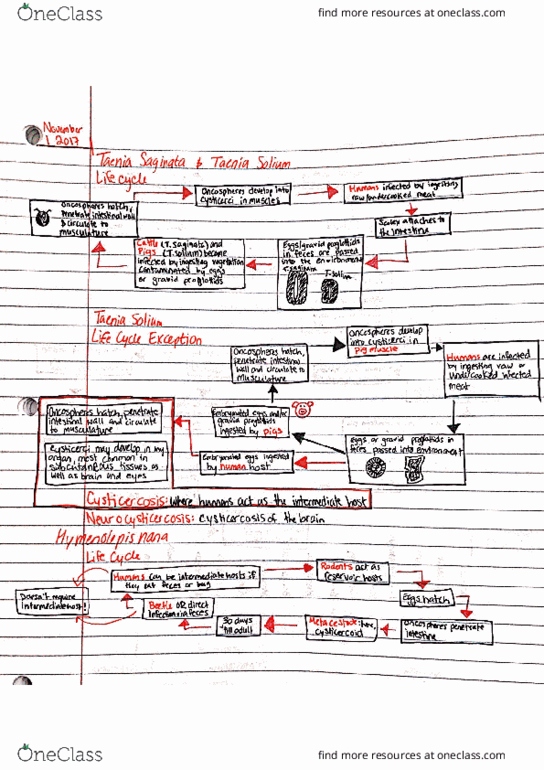 OneClass
find more resources at oneclass.com
November
1 2017
Taenia Saginata & Taenia Solium
Life cycle
Oncospheres hatch,
penetrate intestinal wall
& circulate to
musculature
Oncospheres develop into
cysticerci in muscles
Humans infected by ingesting
raw/undercooked meat
attaches to
the intestine
Eggs/gravid proglottids
in feces are passed
into the environment
T. solium
Cattle (T. saginata) and
Pigs (T. solium) become
infected by ingesting vegetation
contaminated by eggs
or gravid proglottids
Taenia Solium
Life Cycle Exception
Oncospheres hatch,
penetrate intestinal
wall and circulate to
musculature
Oncospheres develop
into cysticerci in
pig muscle
Humans are infected
by ingesting raw or
undercooked infected
meat
Embryonated eggs and/or
gravid proglottids
ingested by pigs
Embryonated eggs ingested
by human host
Eggs or gravid proglottids in
feces passed into environment
Oncospheres hatch, penetrate
intestinal wall and circulate
to musculature
cysticerci may develop in any
organ, most common in
subcutaneous tissues as
well as brain and eyes
Cysticercosis: where humans act as the intermediate host
Neurocysticercosis: cysticercosis of the brain
Hymenolepis nana
Life Cycle
Doesn't require
intermediate host!
Humans can be intermediate hosts if
they eat feces or bug
Rodents act as
reservoir hosts
Eggs hatch
Oncospheres penetrate
intestine
Metacestode:
cysticercoid
30 days
till adult
Beetle OR direct
infection via feces
OneClass
find more resources at oneclass.com